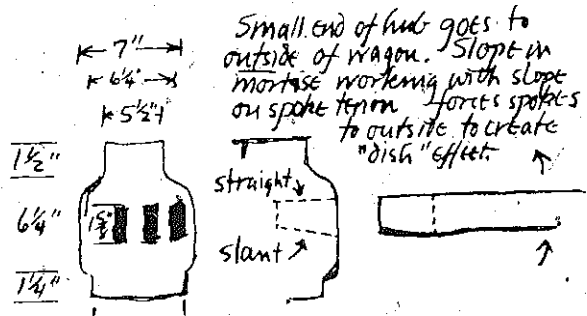 Small end of hub goes to
outside of wagon. Slope in
mortise working with slope
on spoke tenon forces spokes
to outside to create
"dish" effect.
7"
6¼"
5½"
1½"
6¼"
1¼"
straight
slant